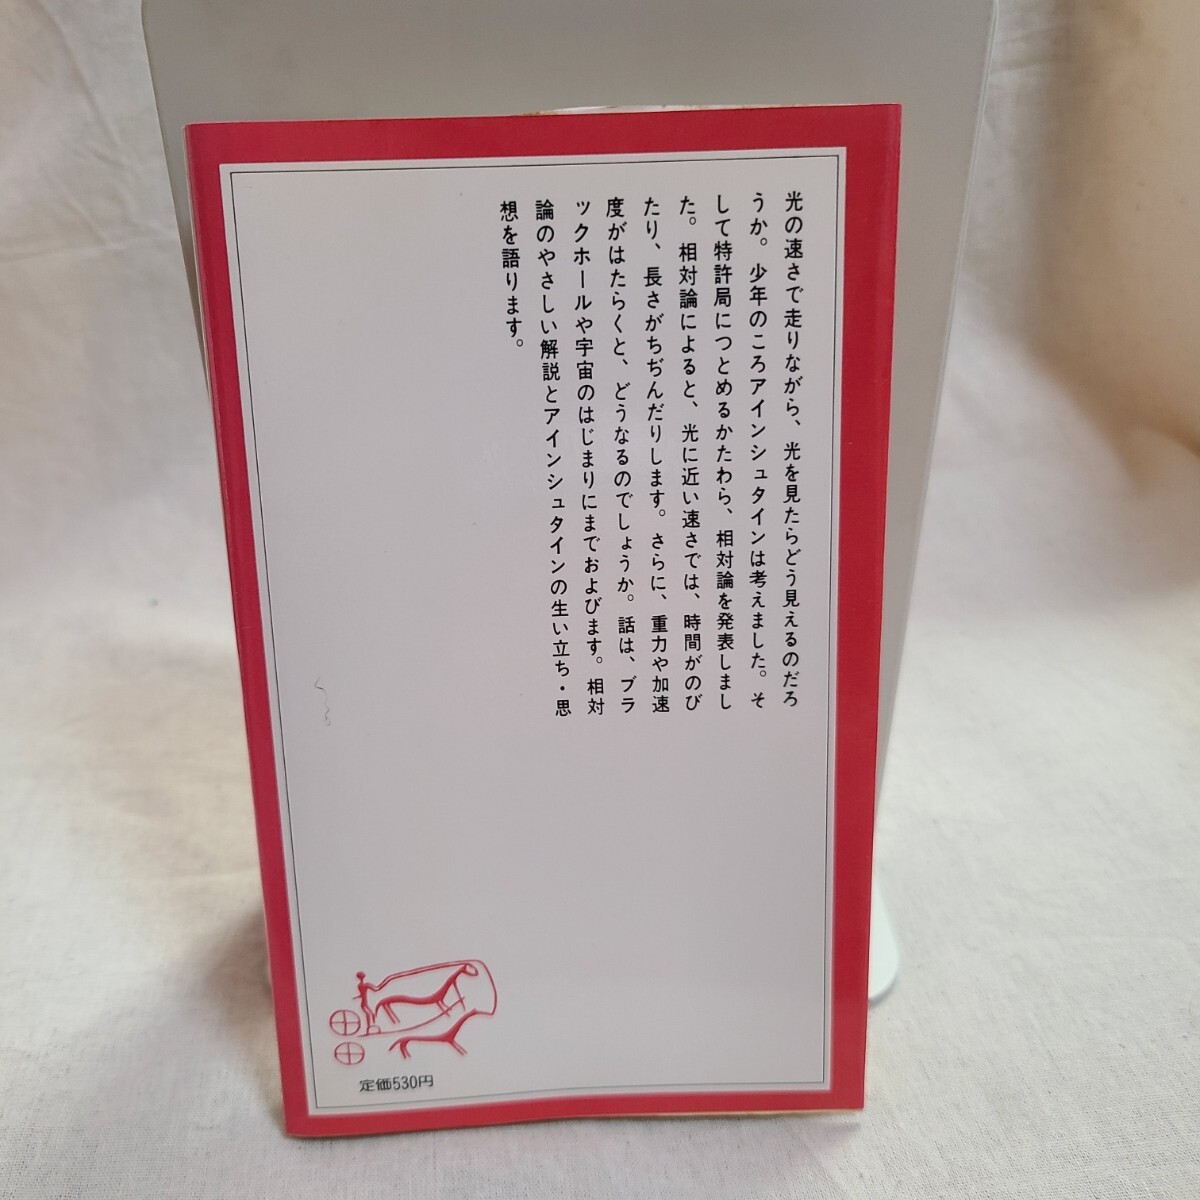 光の速さで走りながら、光を見たらどう見えるのだろ
うか。少年のころアインシュタインは考えました。そ
して特許局につとめるかたわら、相対論を発表しまし
た。相対論によると、光に近い速さでは、時間がのび
たり、長さがちぢんだりします。さらに、重力や加速
度がはたらくと、どうなるのでしょうか。話は、ブラ
ックホールや宇宙のはじまりにまでおよびます。相対
論のやさしい解説とアインシュタインの生い立ち・思
想を語ります。
定価530円